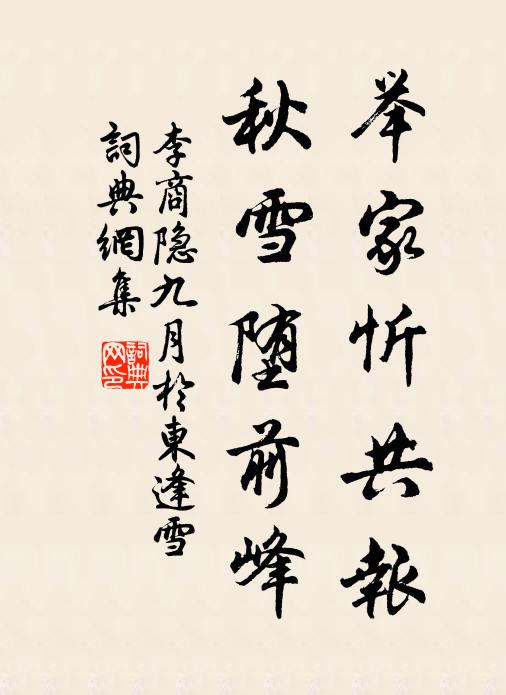 举家忻共報
秋雪堕前峰
李商隐九月於東逢雪
詞典網集
詞典网印